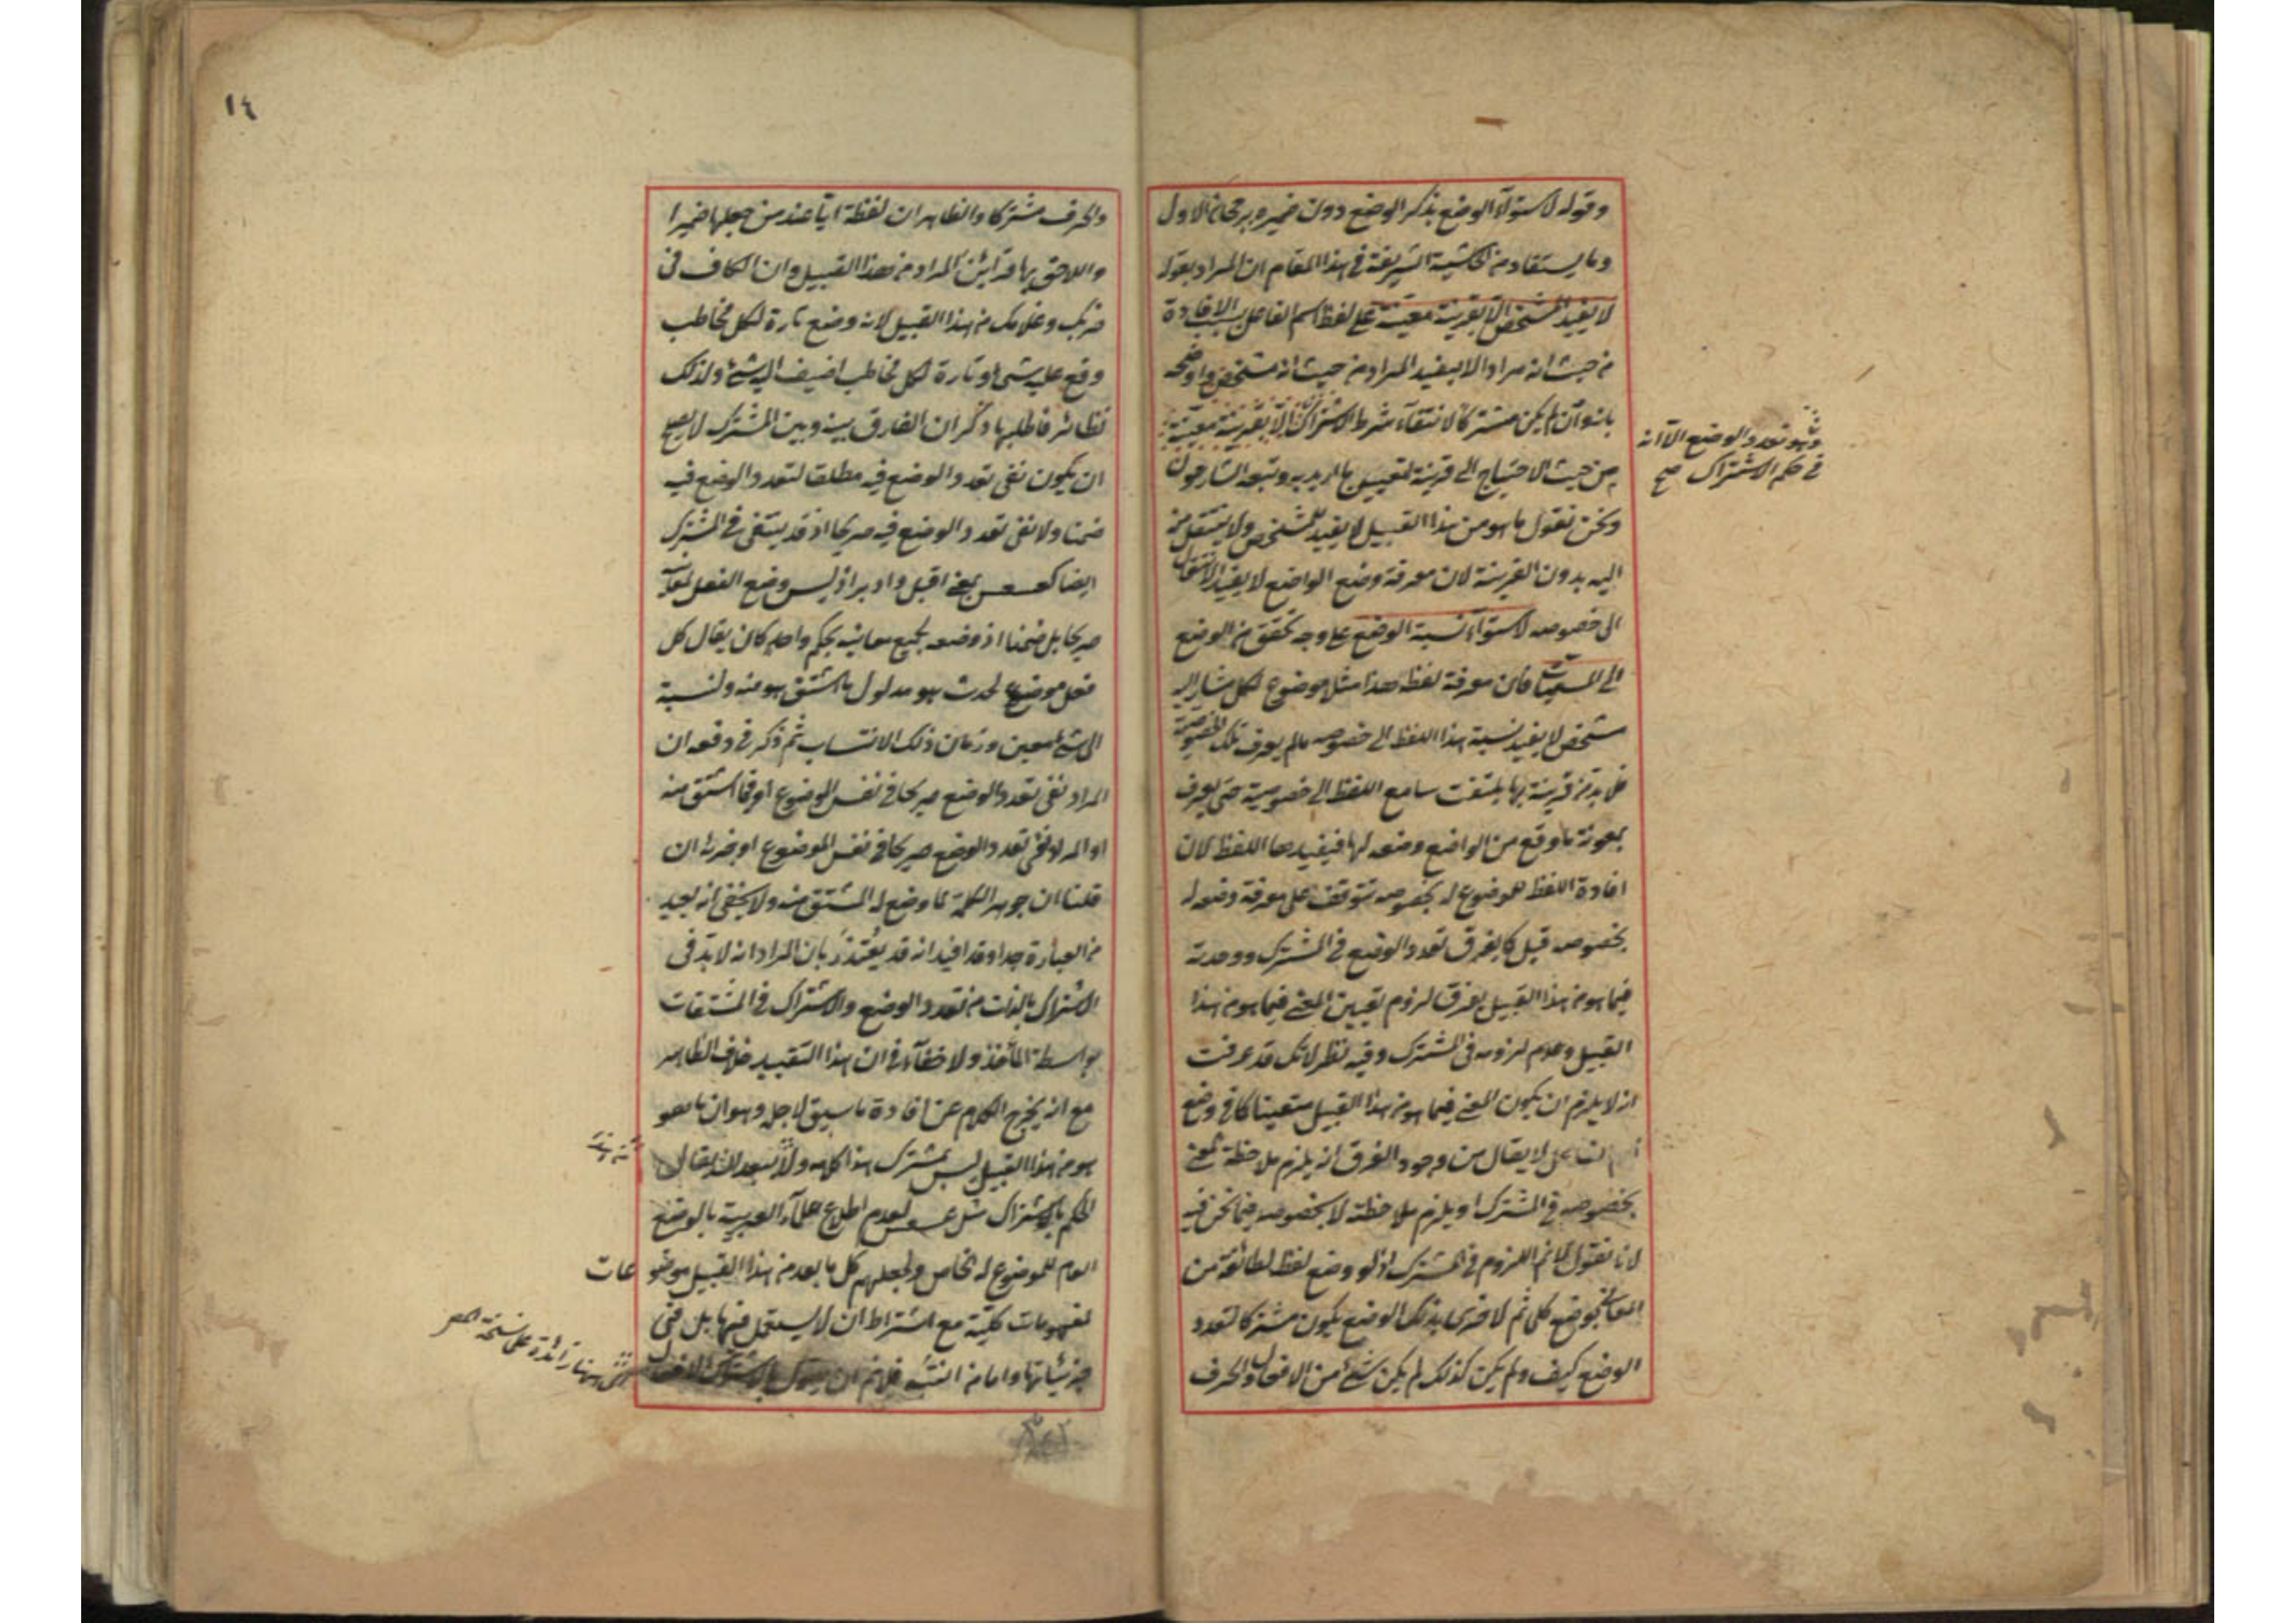 وقوله لاستواء الوضع بذكر الوضع دون ضميره يرجحان الاول
وما يستفاد من الحاشية الشريفة في هذا المقام ان المراد بقوله
لا يفيد التشخص الا بقرينة معينة على لفظ اسم الفاعل سلب الافادة
من حيث انه مراد اى لا يفيد المراد من حيث انه مشخص واوضحه
بانه وان لم يكن مشتركا لانتفاء شرط الاشتراك الا بقرينة معينة
من حيث الاحتياج الى قرينة لتعيين ما اريد به وتبعه الشارحون
ونحن نقول ما هو من هذا القبيل لا يفيد التشخص ولا ينتقل منه
اليه بدون القرينة لان معرفة وضع الواضع لا يفيد الانتقال
الى خصوصه لاستواء نسبة الوضع على وجه تحقق من الوضع
الى المسميات فان معرفة لفظ هذا مثلا موضوع لكل مشار اليه
مشخص لا يفيد نسبة هذا اللفظ الى خصوصه ما لم يعرف تلك الخصوصية
فلا بد من قرينة بها يلتفت سامع اللفظ الى خصوصية حتى يعرف
بمعونة ما وقع من الواضع وضعه لها فيفيدها اللفظ لان
افادة اللفظ لموضوع له بخصوصه تتوقف على معرفة وضعه له
بخصوصه قيل كما يفرق تعدد الوضع في المشترك ووحدته
فيما هو من هذا القبيل يفرق لزوم تعيين المعنى فيما هو من هذا
القبيل وعدم لزومه في المشترك وفيه نظر لانك قد عرفت
انه لا يلزم ان يكون المعنى فيما هو من هذا القبيل متعينا كما في وضع
لا يقال من وجوه الفرق انه يلزم ملاحظة المعنى
بخصوصه في المشترك او يلزم ملاحظة لا بخصوصه فيما نحن فيه
لانا نقول تمانع اللزوم في المشترك اذ لو وضع لفظ لطائفة من
المعاني بوضع كلى ثم لاخرى بذلك الوضع يكون مشتركا لتعدد
الوضع كيف ولم يكن كذلك لم يكن شيء من الافعال والحرف
وهو تعدد الوضع الا انه
في حكم الاشتراك صح
١٤
والحرف مشتركا والظاهر ان لفظة ايا عند من جعلها ضميرا
واللاحق بها قرائن المراد من هذا القبيل وان الكاف في
ضربك وغلامك من هذا القبيل لانه وضع تارة لكل مخاطب
وقع عليه شيء وتارة لكل مخاطب اضيف اليه شيء ولذلك
نظائر فاطلبها وذكر ان الفارق بينه وبين المشترك لا يصح
ان يكون نفى تعدد الوضع فيه مطلقا لتعدد الوضع فيه
ضمنا ولا نفى تعدد الوضع فيه صريحا اذ قد ينتفى في المشترك
ايضا كعسعس بمعنى اقبل وادبر اذ ليس وضع الفعل لمعناه
صريحا بل ضمنا اذ وضعه لجميع معانيه بحكم واحد كان يقال كل
فعل موضوع لحدث هو مدلول ما اشتق هو منه ونسبة
الى شيء معين وزمان ذلك الانتساب ثم ذكر في دفعه ان
المراد نفى تعدد الوضع صريحا في نفس الموضوع او فما اشتق منه
او المراد نفى تعدد الوضع صريحا في نفس الموضوع او جزئه ان
قلنا ان جوهر الكلمة لما وضع له المشتق منه ولا يخفى انه بعيد
من العبارة جدا وقد افيد انه قد يعتذر بان المراد انه لا بد في
الاشتراك بالذات من تعدد الوضع والاشتراك في المشتقات
بواسطة المأخذ ولا خفاء في ان هذا التقييد خلاف الظاهر
مع انه يخرج الكلام عن افادة ما سيق لاجله وهو ان ما هو
هو من هذا القبيل ليس بمشترك هذا كلامه ولا يبعد ان يقال
الحكم باشتراك مثل عسعس لعدم اطلاع علماء العربية بالوضع
العام للموضوع له الخاص ولجعلهم كل ما يعد من هذا القبيل موضو
عات
لمفهومات كلية مع اشتراط ان لا يستعمل فيها بل في
جزئياتها واما من اثبته فله ان